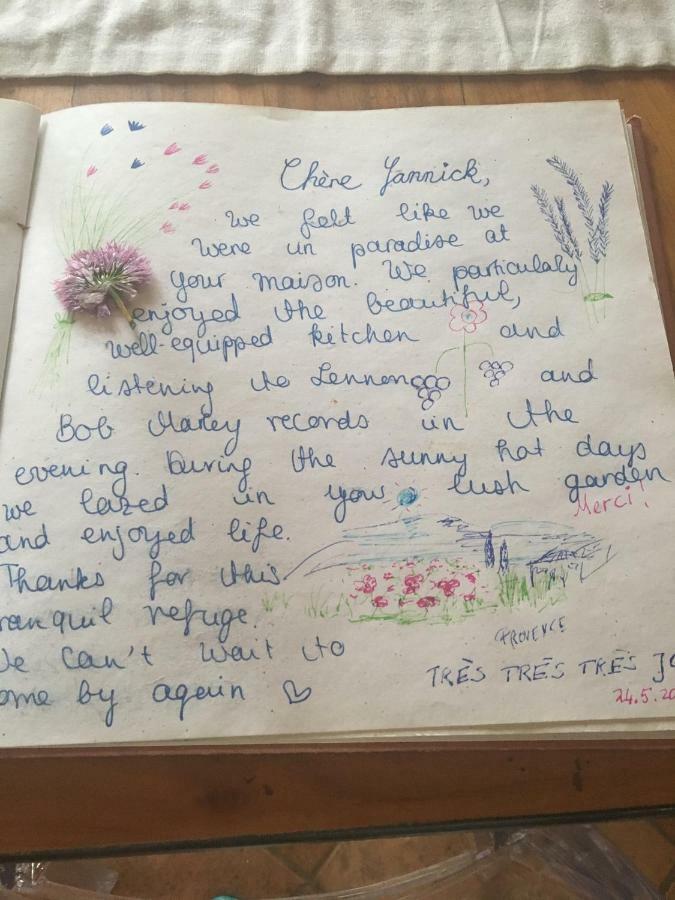 Chère Yannick,
we felt like we
were in paradise at
your maison. We particulaly
enjoyed the beautiful,
well-equipped kitchen and
listening to Lennon and
Bob Marley records in the
evening. During the sunny hot days
we lazed in your lush garden
Merci!
and enjoyed life.
Thanks for this
ranquil refuge.
We can't wait to
ome by again ♡
PROVENCE
TRÈS TRÈS TRÈS JO
24.5.20